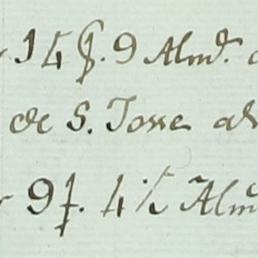 14 p. 9 Almd.
de S. Tosse
9 p. 4 ½ Alm